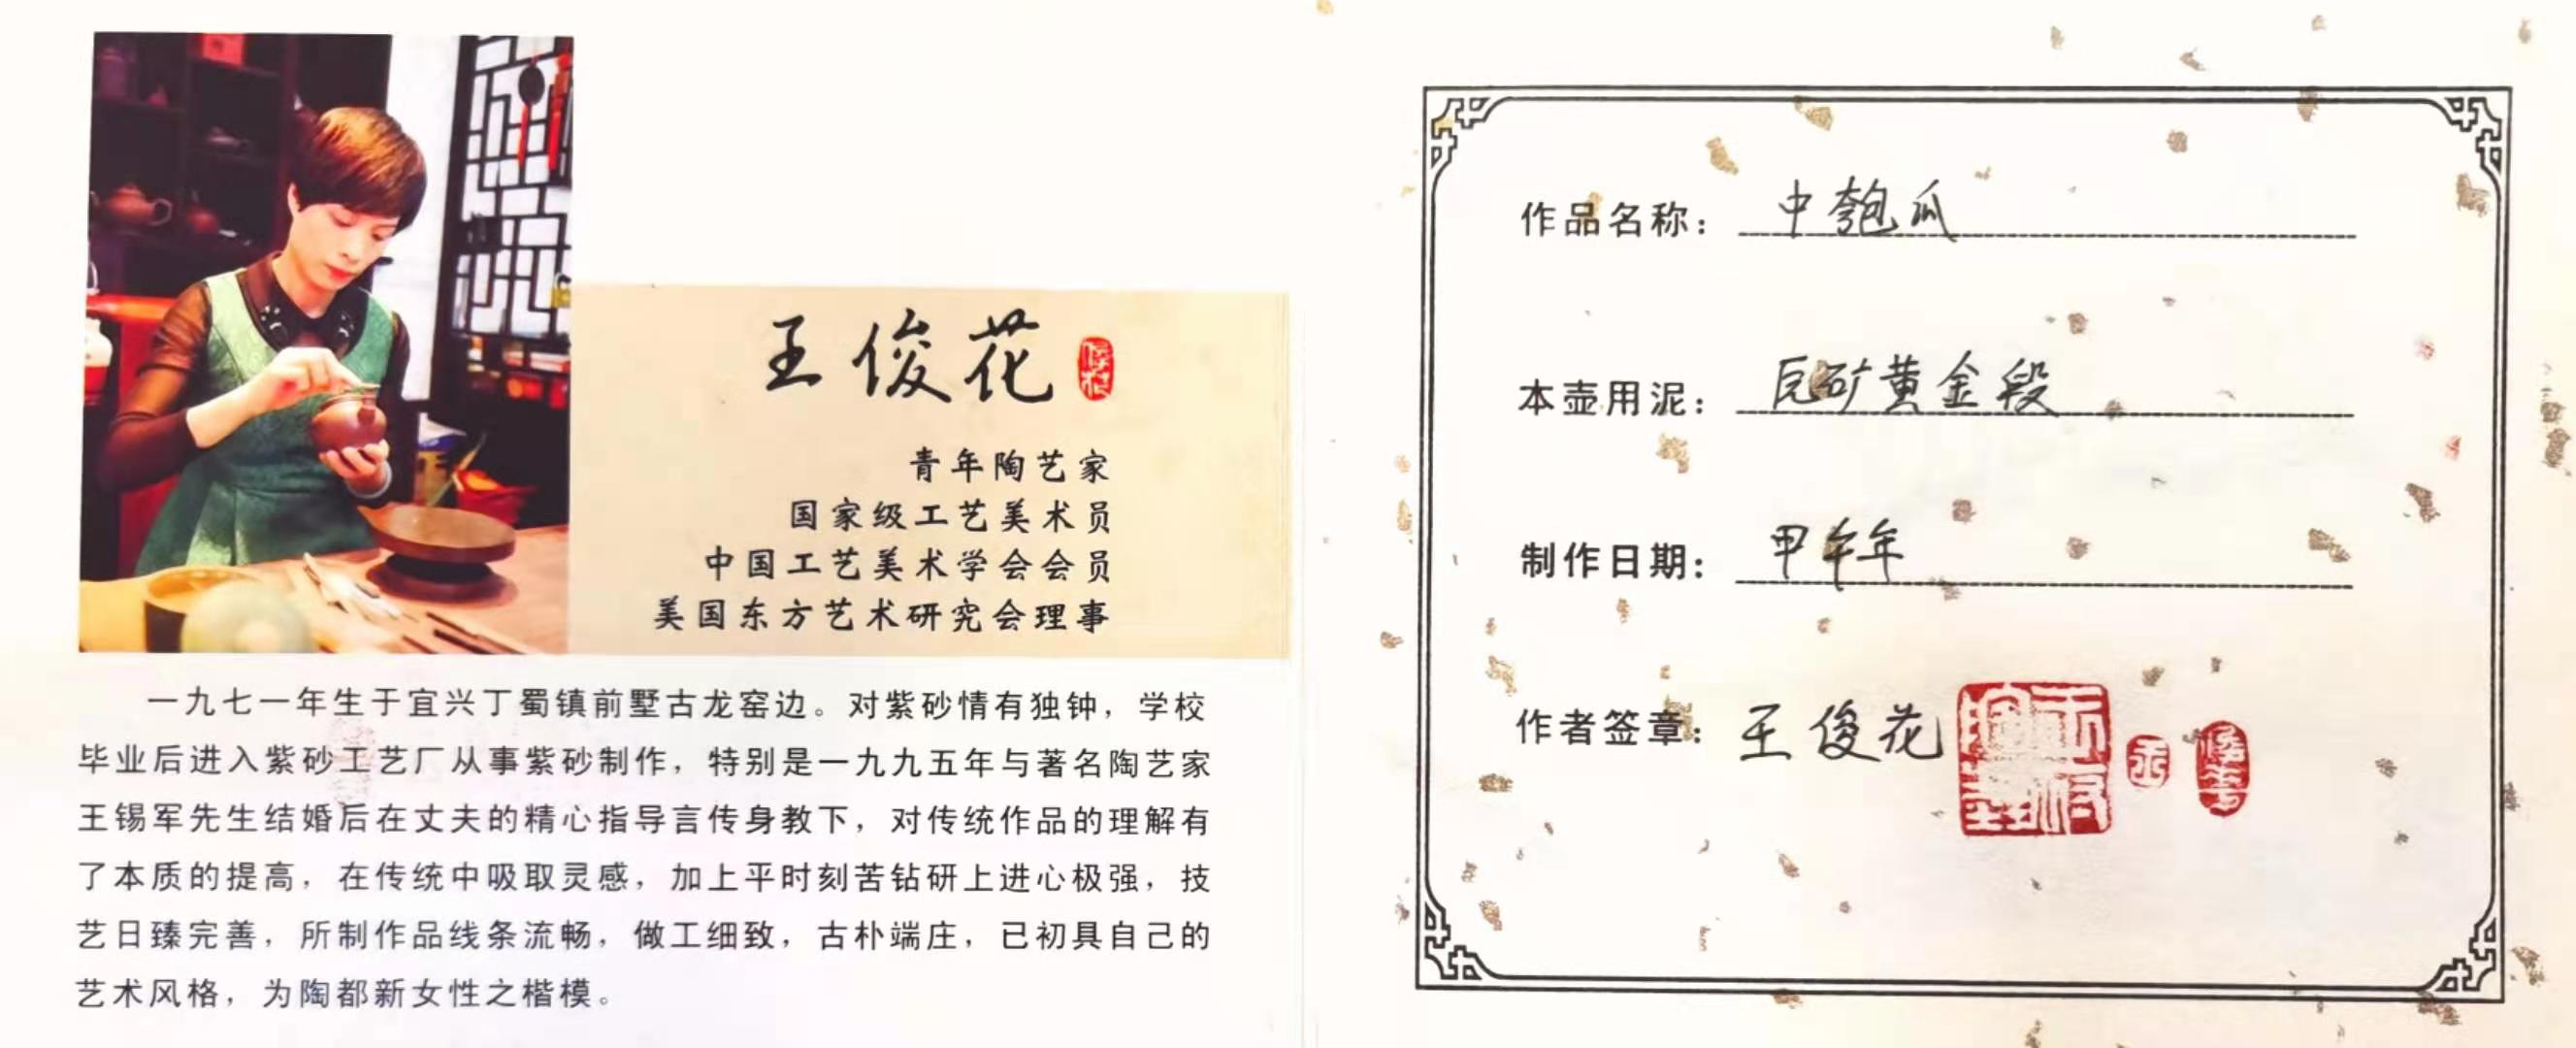 王俊花
青年陶艺家
国家级工艺美术员
中国工艺美术学会会员
美国东方艺术研究会理事
一九七一年生于宜兴丁蜀镇前墅古龙窑边。对紫砂情有独钟，学校
毕业后进入紫砂工艺厂从事紫砂制作，特别是一九九五年与著名陶艺家
王锡军先生结婚后在丈夫的精心指导言传身教下，对传统作品的理解有
了本质的提高，在传统中吸取灵感，加上平时刻苦钻研上进心极强，技
艺日臻完善，所制作品线条流畅，做工细致，古朴端庄，已初具自己的
艺术风格，为陶都新女性之楷模。
作品名称：中匏瓜
本壶用泥：原矿黄金段
制作日期：甲午年
作者签章：王俊花